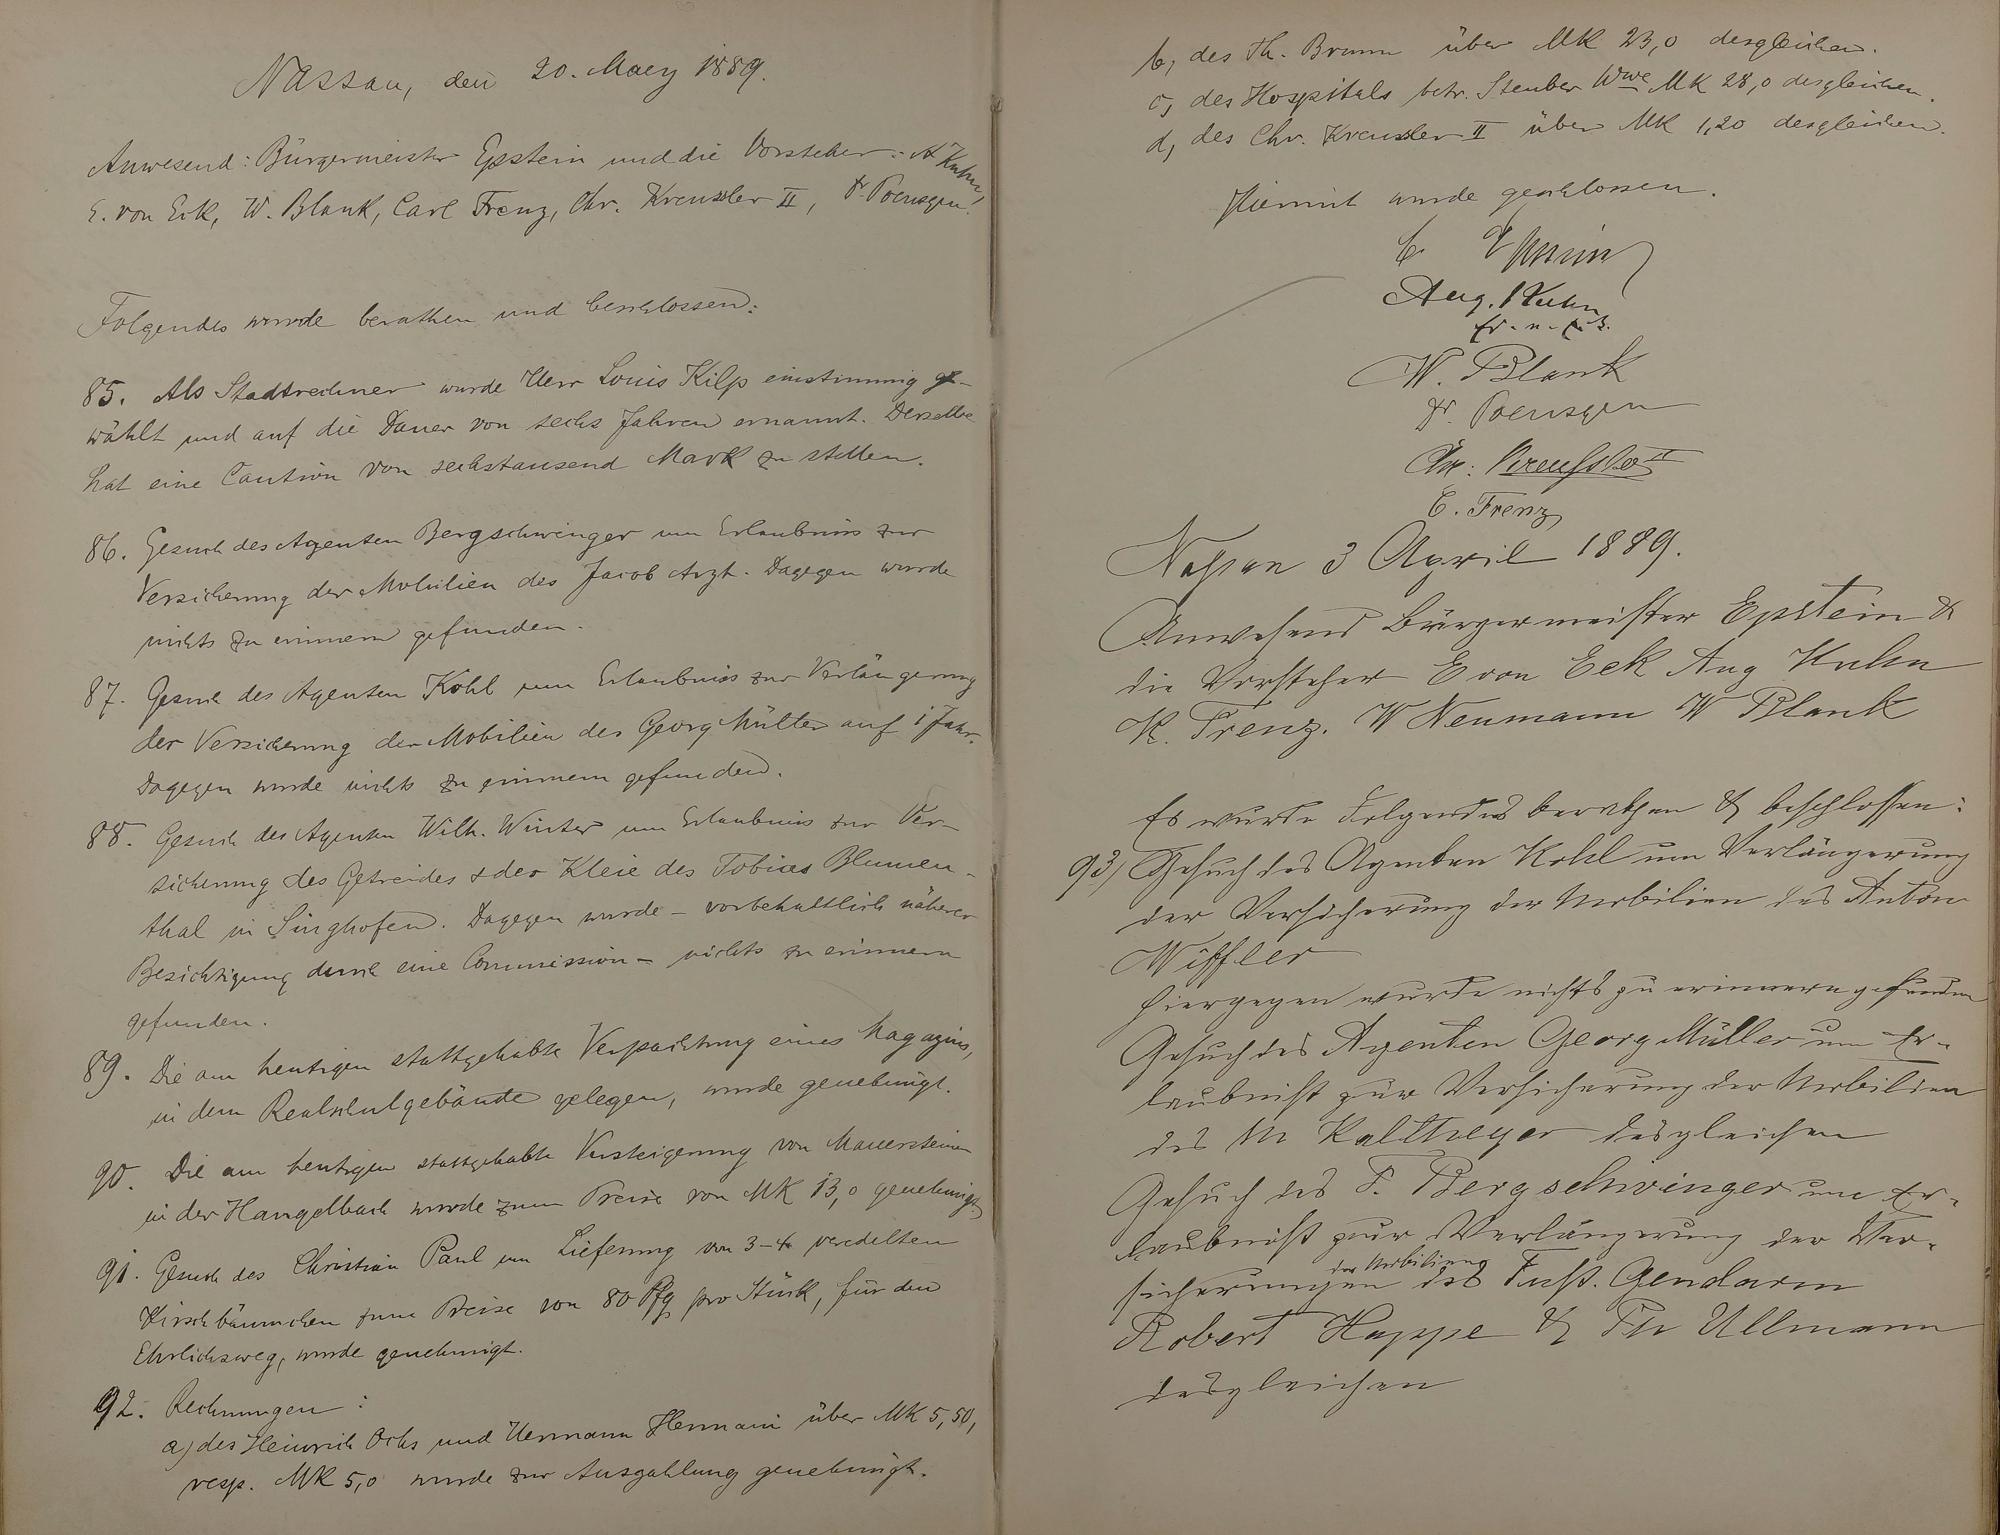 Nassau, den 20. Maerz 1889.
Anwesend: Bürgermeister Epstein und die Vorsteher: A Kuhn,
E. von Eck, W. Blank, Carl Frenz, Chr. Kreussler II, Dr Poensgen.
Folgendes wurde berathen und beschlossen:
85. Als Stadtrechner wurde Herr Louis Kilp einstimmig ge-
wählt und auf die Dauer von sechs Jahren ernannt. Derselbe
hat eine Caution von sechstausend Mark zu stellen.
86. Gesuch des Agenten Bergschwinger um Erlaubniss zur
Versicherung der Mobilien des Jacob Arzt. Dagegen wurde
nichts zu erinnern gefunden.
87. Gesuch des Agenten Kohl um Erlaubniss zur Verlängerung
der Versicherung der Mobilien des Georg Müller auf 1 Jahr.
Dagegen wurde nichts zu erinnern gefunden.
88. Gesuch des Agenten Wilh. Winter um Erlaubniss zur Ver-
sicherung des Getreides & der Kleie des Tobias Blumen-
thal in Singhofen. Dagegen wurde - vorbehaltlich näherer
Besichtigung durch eine Commission - nichts zu erinnern
gefunden.
89. Die am heutigen stattgehabte Verpachtung eines Magazins,
in dem Realschulgebäude gelegen, wurde genehmigt.
90. Die am heutigen stattgehabte Versteigerung von Mauersteinen
in der Hangelbach wurde zum Preise von MK 13,0 genehmigt.
91. Gesuch des Christian Paul um Lieferung von 3-4 veredelten
Kirschbäumchen zum Preise von 80 Pfg pro Stück, für den
Ehrlichsweg, wurde genehmigt.
92. Rechnungen:
a, des Heinrich Ochs und Hermann Hermani über MK 5,50,
resp. MK 5,0 wurde zur Auszahlung genehmigt.
b, des Th. Bruun über MK 23,0 desgleichen.
c, des Hospitals betr. Steuber Wwe MK 28,0 desgleichen.
d, des Chr. Kreussler II über MK 1,20 desgleichen.
Hiermit wurde geschlossen.
C Epstein
Aug. Kuhn
W. Blank
Dr Poensgen
Chr: Kreußler II
C. Frenz
Naßau 3 April 1889.
Anwesend Bürgermeister Epstein &
die Vorsteher E von Eck Aug Kuhn
K. Frenz. W Neumann W Blank
Es wurde Folgendes berathen & beschloßen:
93) Gesuch des Agenten Kohl um Verlängerung
der Versicherung der Mobilien des Anton
Wiffler
hiergegen wurde nichts zu erinnern gefunden
Gesuch des Agenten Georg Müller um Er-
laubniß zur Versicherung der Mobilien
des M Kaltheyer desgleichen
Gesuch des F. Bergschwinger um Er-
laubniß zur Verlängerung der Ver-
sicherungen der Mobilien des Fuß. Gendarm
Robert Happe & Ph Ullmann
desgleichen